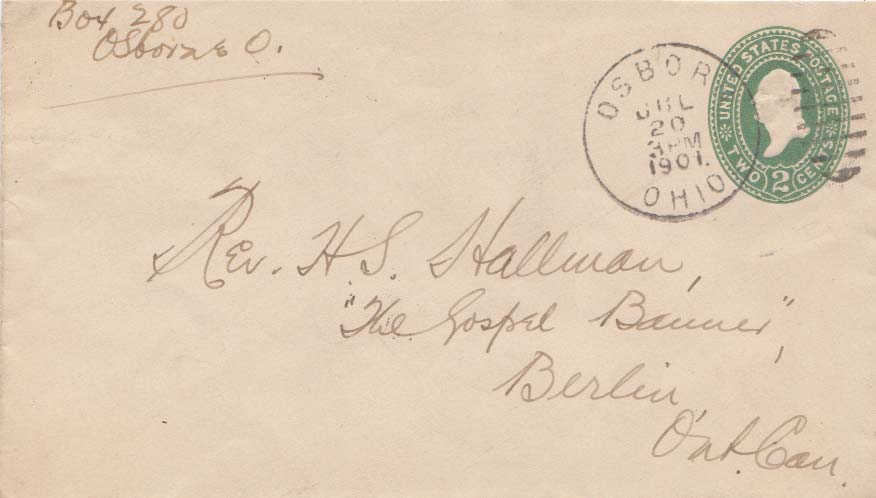 Box 280
Osborne O.
OSBOR
JUL
20
PM
1901.
OHIO
UNITED STATES POSTAGE
TWO 2 CENTS
Rev. H S. Hallman,
"The Gospel Banner",
Berlin
Ont. Can.